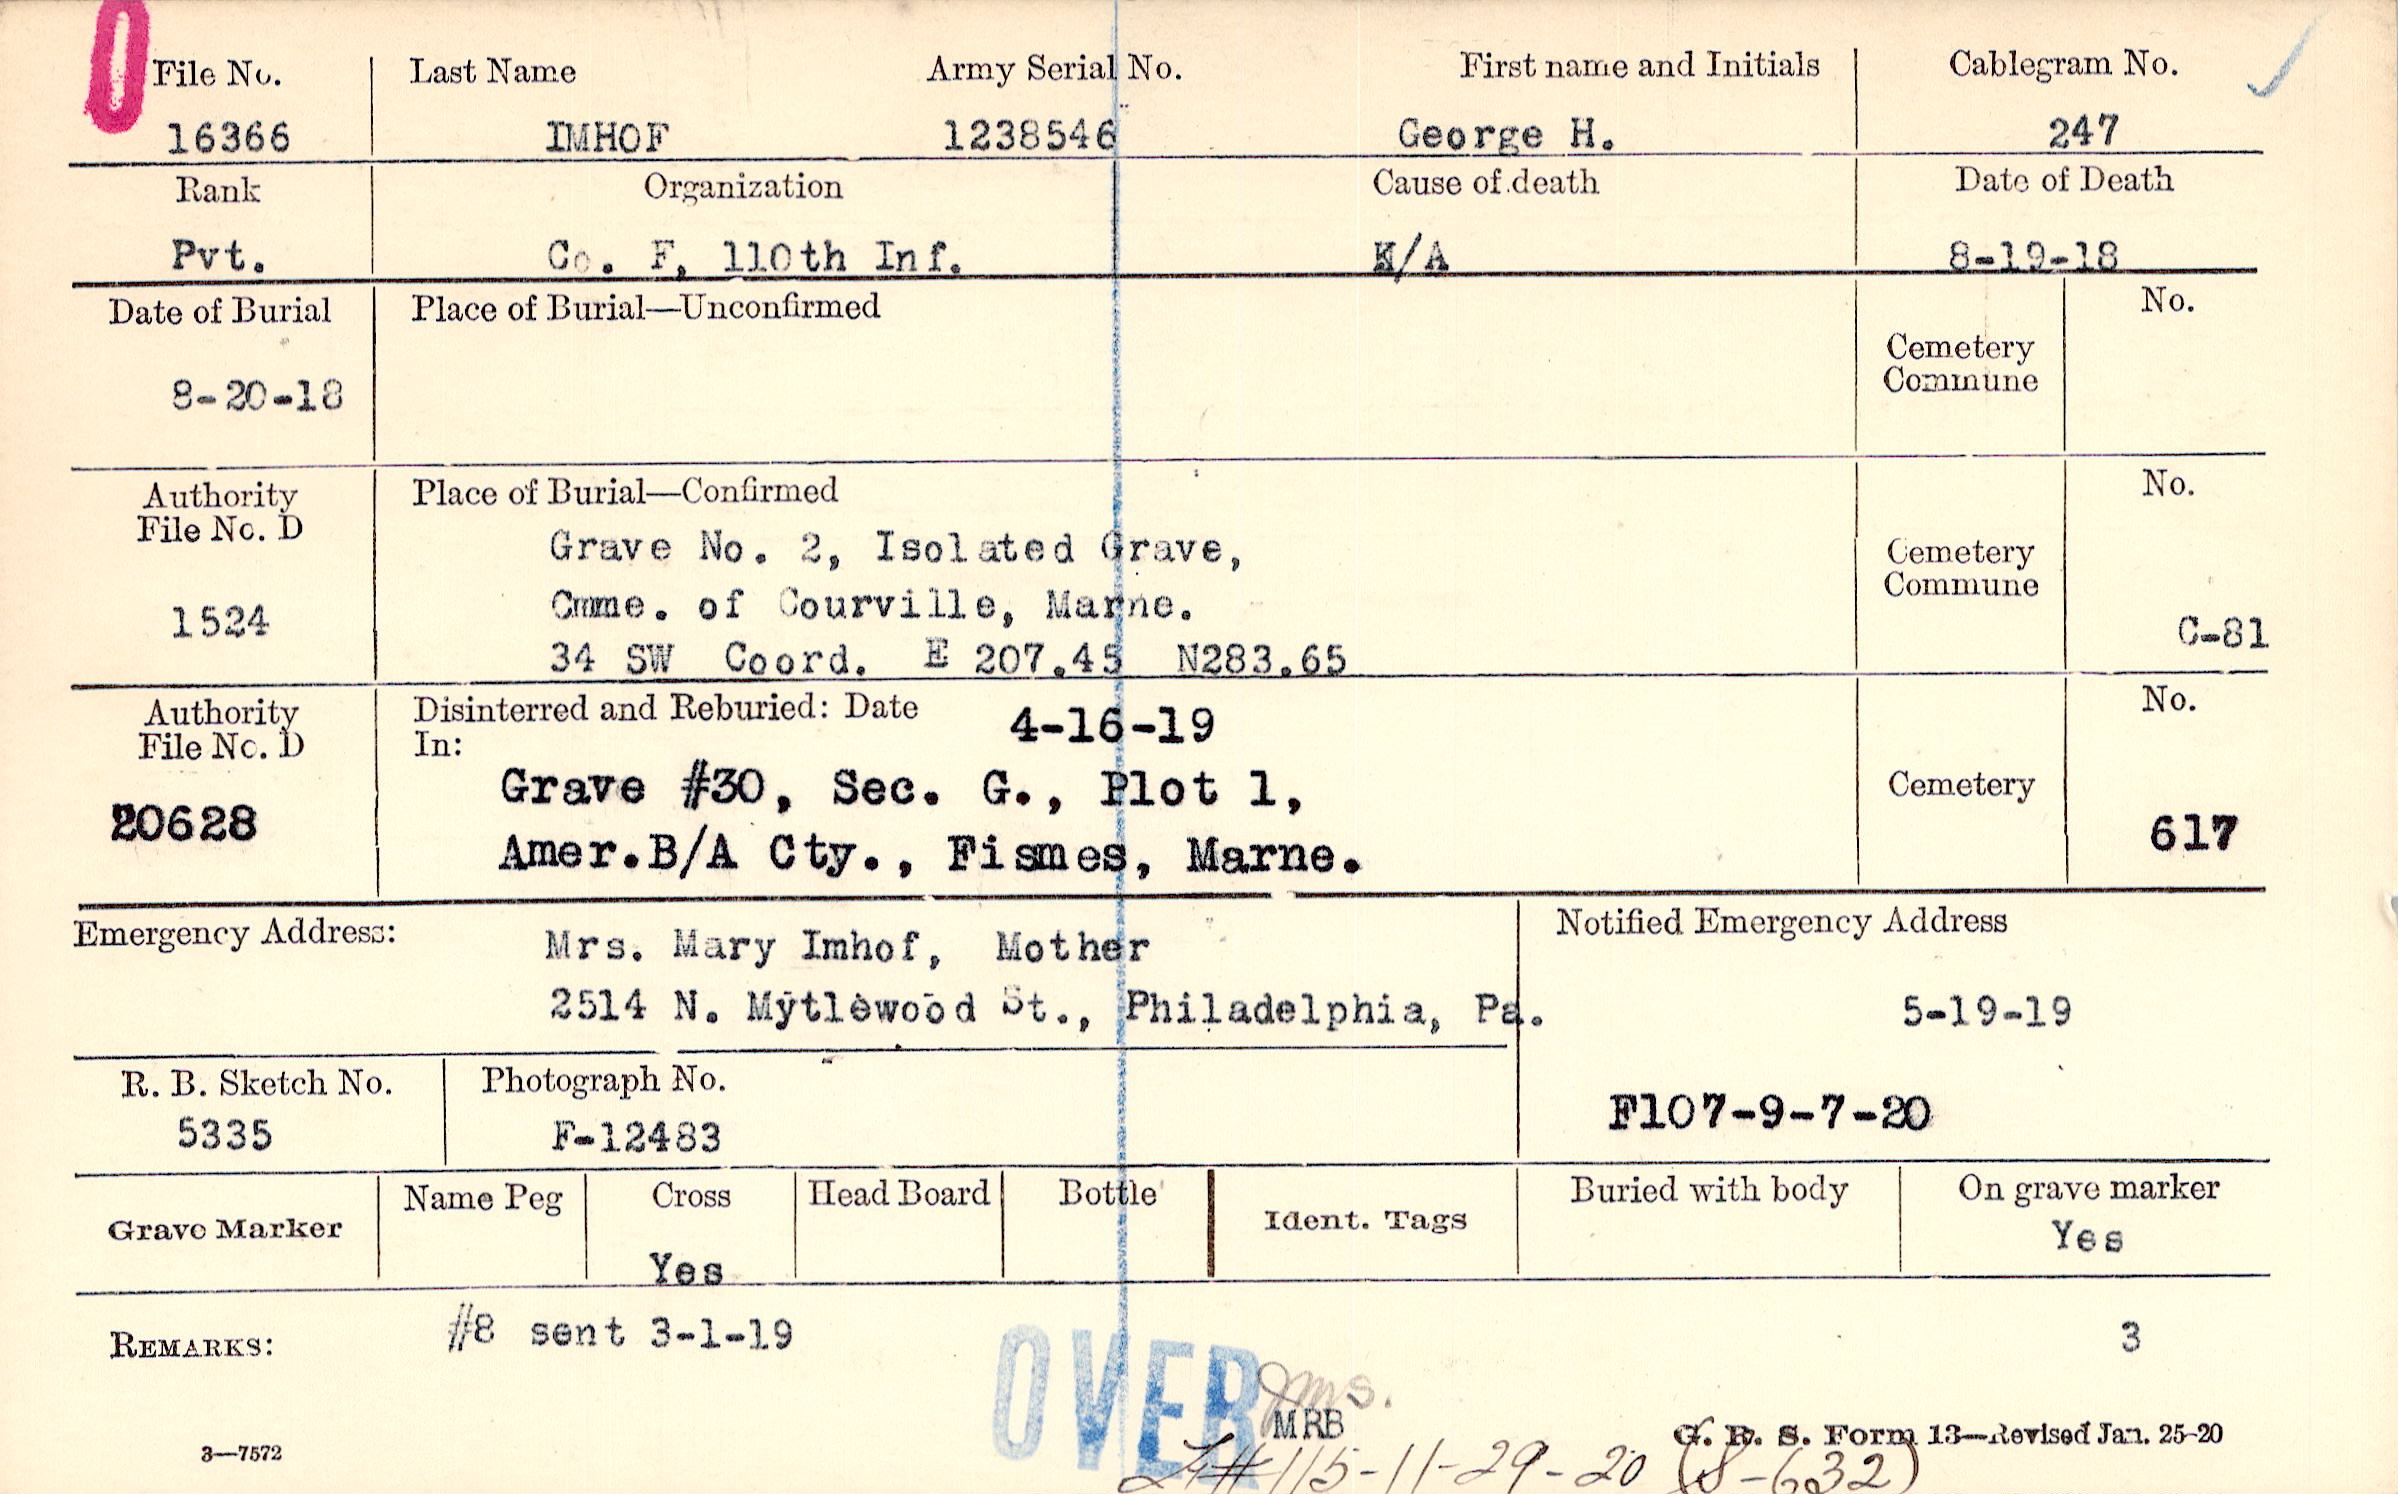 File No. Last Name Army Serial No. First name and Initials Cablegram No.
16366 IMHOF 1238546 George H. 247
Rank Organization Cause of death Date of Death
Pvt. Co. F, 110th Inf. K/A 8-19-18
Date of Burial Place of Burial—Unconfirmed No.
Cemetery
Commune
8-20-18
Authority Place of Burial—Confirmed No.
File No. D
Grave No. 2, Isolated Grave, Cemetery
Commune
1524 Cmme. of Courville, Marne. C-81
34 SW Coord. E 207.45 N283.65
Authority Disinterred and Reburied: Date 4-16-19 No.
File No. D In:
Grave #30, Sec. G., Plot 1, Cemetery
20628 Amer.B/A Cty., Fismes, Marne. 617
Emergency Address: Mrs. Mary Imhof, Mother Notified Emergency Address
2514 N. Mytlewood St., Philadelphia, Pa. 5-19-19
R. B. Sketch No. Photograph No.
5335 F-12483 F107-9-7-20
Grave Marker Name Peg Cross Head Board Bottle Ident. Tags Buried with body On grave marker
Yes Yes
REMARKS: #8 sent 3-1-19 3
OVER
MRB
3—7572 G. R. S. Form 13—Revised Jan. 25-20
#115-11-29-20 (8-632)